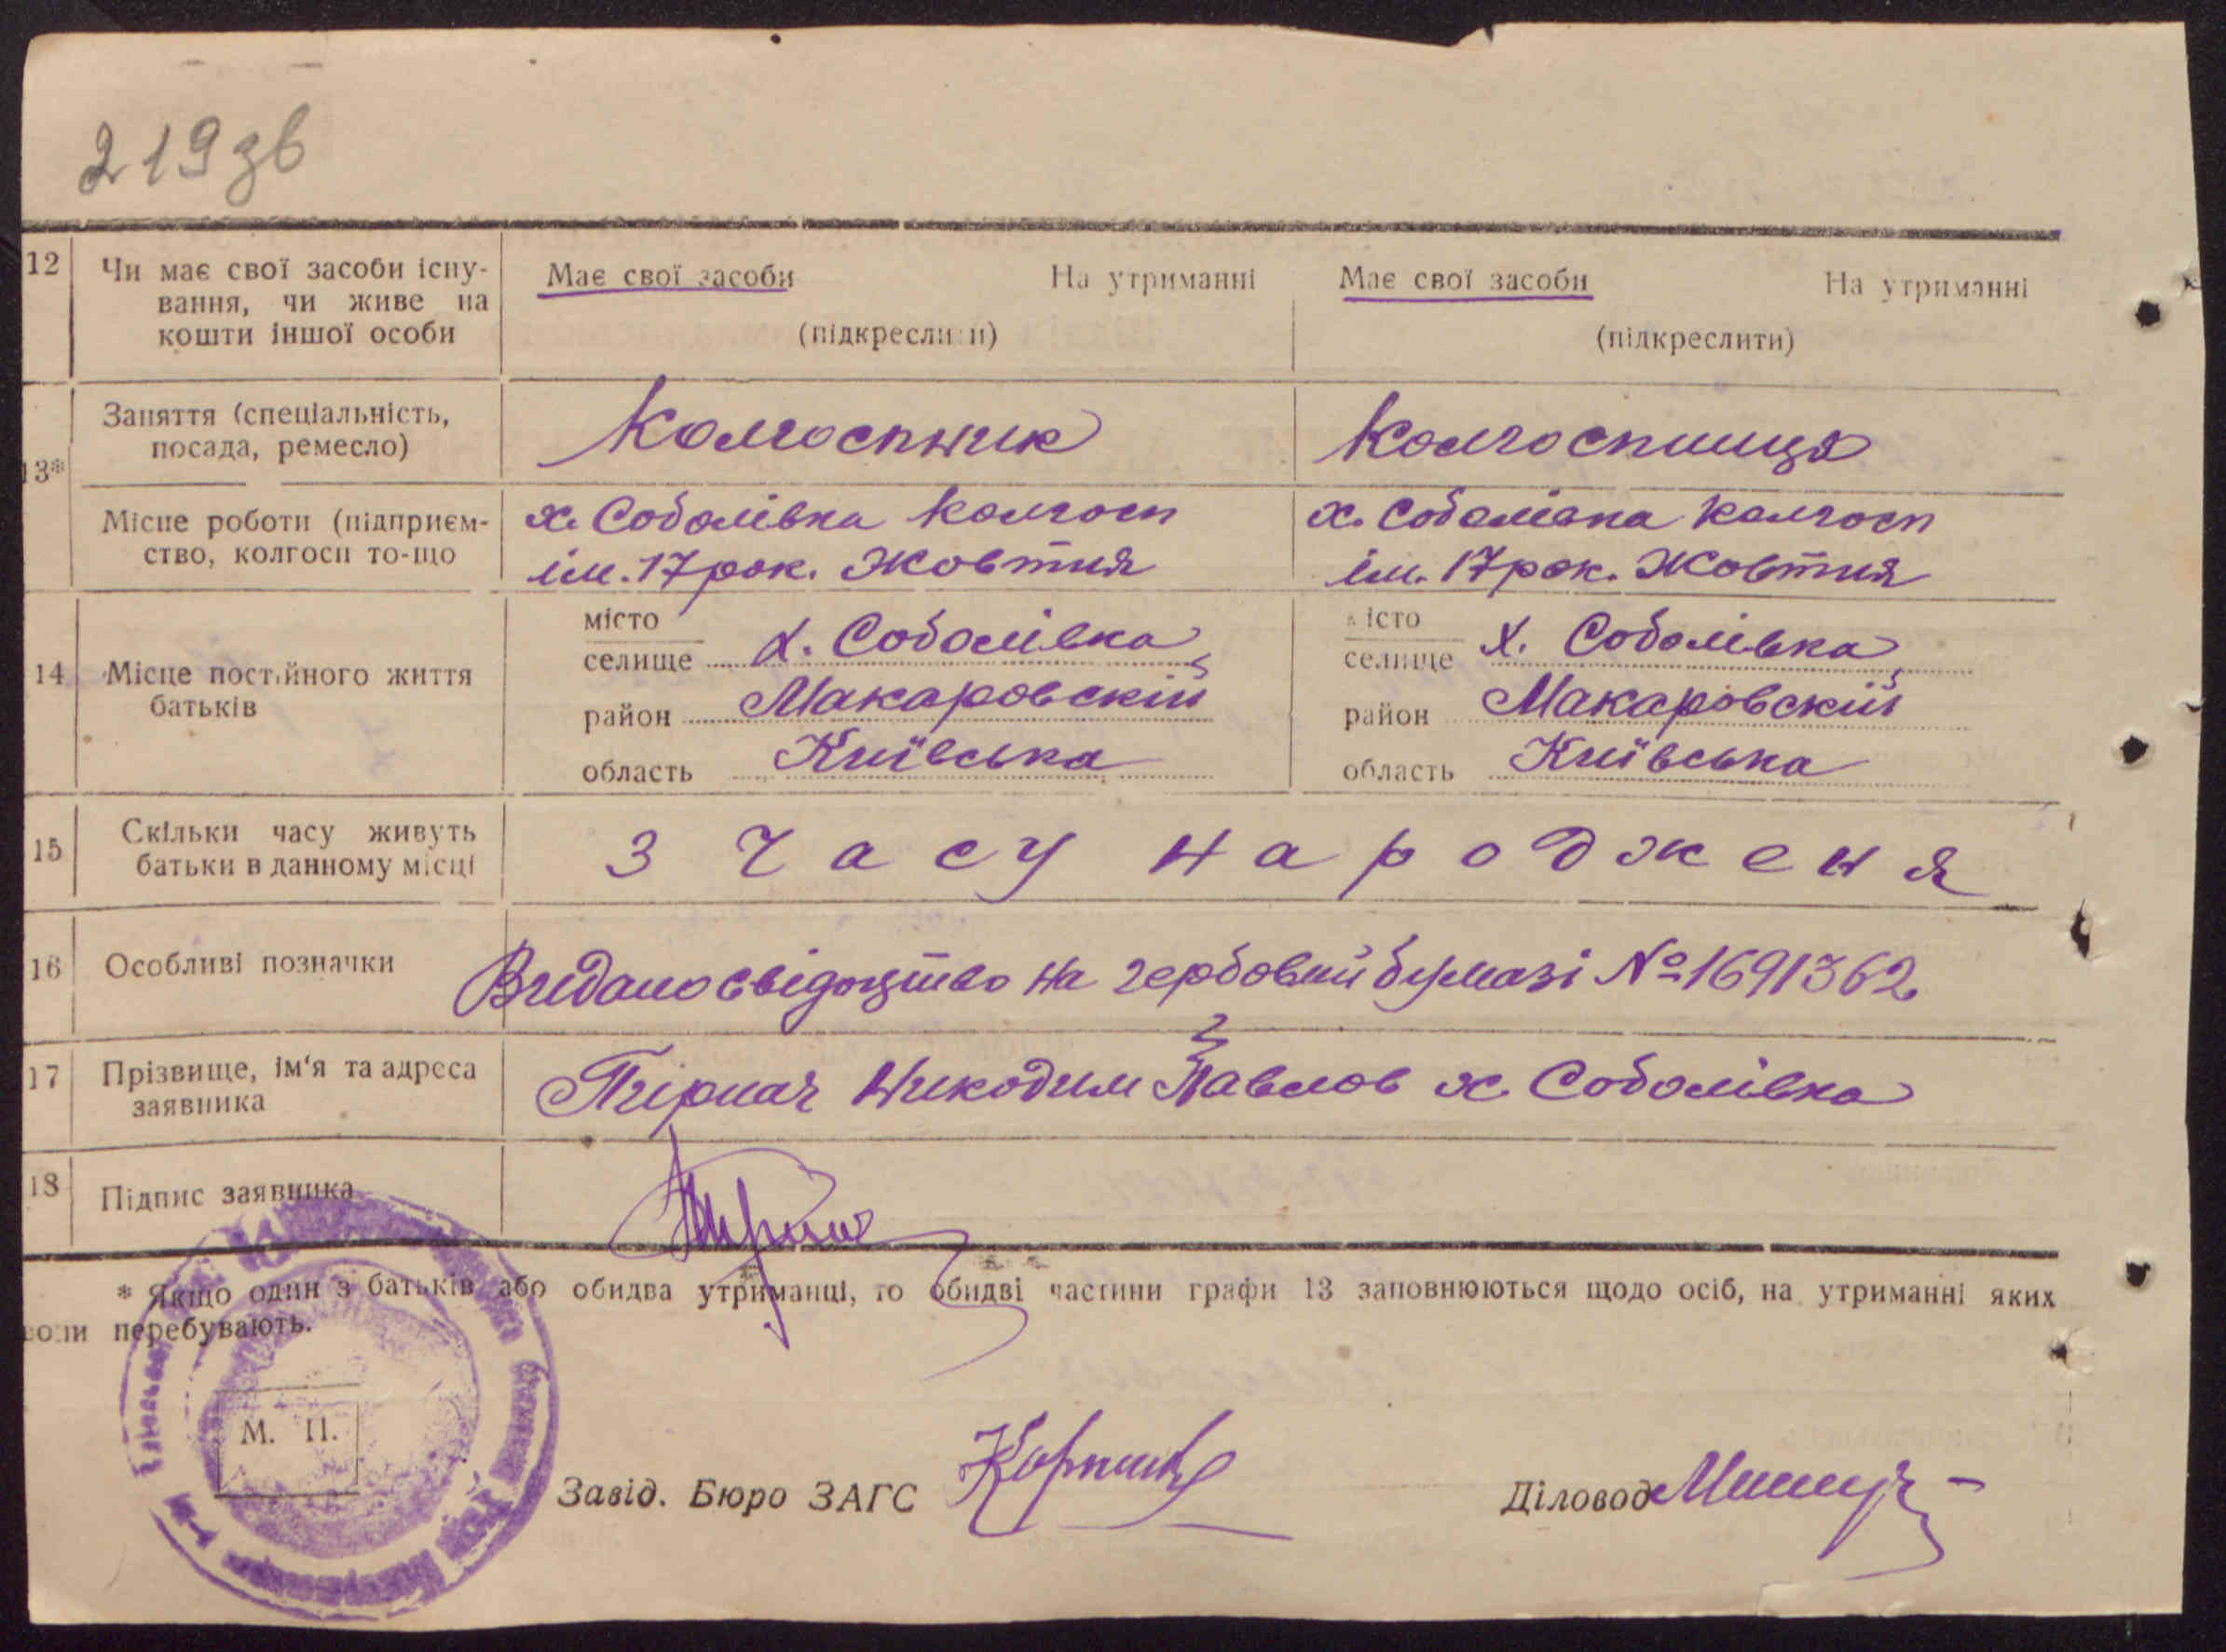 219зв
12 Чи має свої засоби існу-
вання, чи живе на
кошти іншої особи
Має свої засоби На утриманні
(підкреслити)
Має свої засоби На утриманні
(підкреслити)
13*
Заняття (спеціальність,
посада, ремесло)
Колгоспник
Колгоспниця
Місце роботи (підприєм-
ство, колгосп то-що
х. Соболівка колгосп
ім. 17 рок. Жовтня
х. Соболівка колгосп
ім. 17 рок. Жовтня
14 Місце постійного життя
батьків
місто
селище х. Соболівка
район Макаровский
область Київська
місто
селище х. Соболівка
район Макаровский
область Київська
15 Скільки часу живуть
батьки в данному місці
З часу народженя
16 Особливі позначки
Видано свідоцтво на гербовий бумазі № 1691362
17 Прізвище, ім'я та адреса
заявника
Пирнач Никодим Павлов х. Соболівка
18 Підпис заявника
* Якщо один з батьків або обидва утриманці, то обидві частини графи 13 заповнюються щодо осіб, на утриманні яких
вони перебувають.
М. П.
Завід. Бюро ЗАГС
Діловод